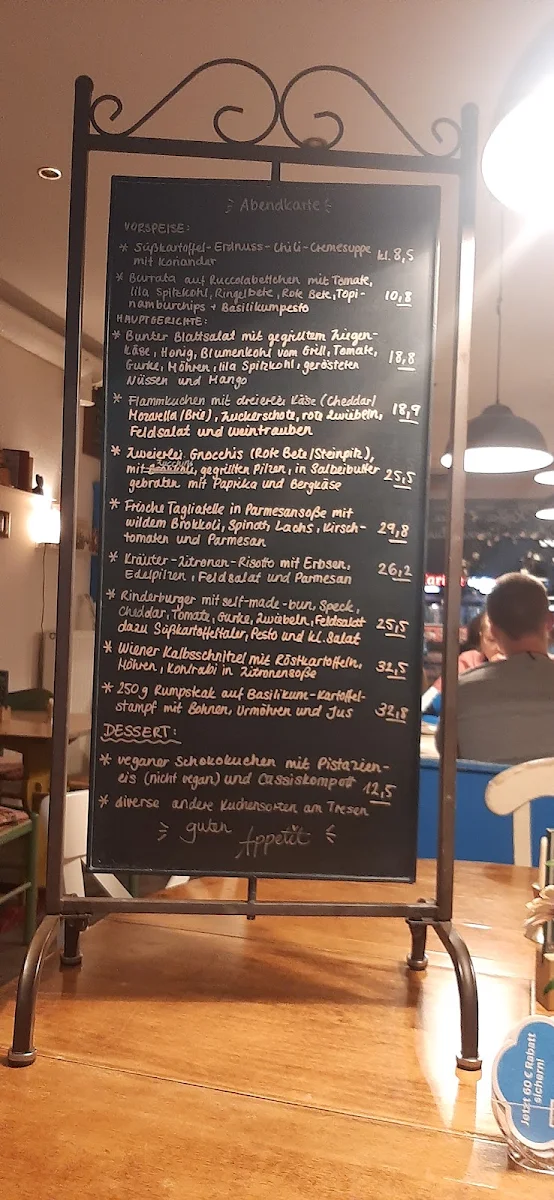 Abendkarte
VORSPEISE:
* Süßkartoffel-Erdnuss-Chili-Cremesuppe kl. 8,5
mit Koriander
* Burrata auf Ruccolabettchen mit Tomate,
lila Spitzkohl, Ringelbete, Rote Bete, Topi- 10,8
namburchips + Basilikumpesto
HAUPTGERICHTE:
* Bunter Blattsalat mit gegrilltem Ziegen-
käse, Honig, Blumenkohl vom Grill, Tomate, 18,8
Gurke, Möhren, lila Spitzkohl, gerösteten
Nüssen und Mango
* Flammkuchen mit dreierlei Käse (Cheddar/ 18,9
Mozarella/Brie), Zuckerschote, rote Zwiebeln,
Feldsalat und Weintrauben
* Zweierlei Gnocchis (Rote Bete/Steinpilz),
mit Zucchini, gegrillten Pilzen, in Salbeibutter 25,5
gebraten mit Paprika und Bergkäse
* Frische Tagliatelle in Parmesansoße mit
wildem Brokkoli, Spinat, Lachs, Kirsch- 29,8
tomaten und Parmesan
* Kräuter-Zitronen-Risotto mit Erbsen, 26,2
Edelpilzen, Feldsalat und Parmesan
* Rinderburger mit self-made-bun, Speck,
Cheddar, Tomate, Gurke, Zwiebeln, Feldsalat 25,5
dazu Süßkartoffeltaler, Pesto und kl. Salat
* Wiener Kalbsschnitzel mit Röstkartoffeln, 32,5
Möhren, Kohlrabi in Zitronensoße
* 250g Rumpsteak auf Basilikum-Kartoffel-
stampf mit Bohnen, Urmöhren und Jus 32,8
DESSERT:
* veganer Schokokuchen mit Pistazien-
eis (nicht vegan) und Cassiskompott 12,5
* diverse andere Kuchensorten am Tresen
guten
Appetit
Jetzt 60 € Rabatt
sichern!